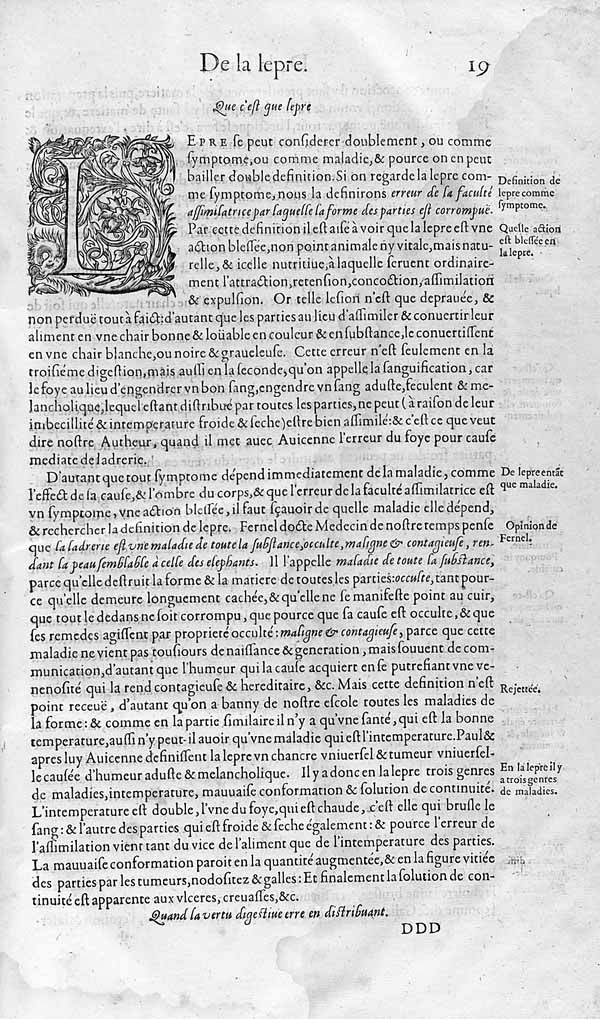 De la lepre. 19
Que c'eſt que lepre
LEPRE ſe peut conſiderer doublement, ou comme
ſymptome, ou comme maladie, & pource on en peut
bailler double definition. Si on regarde la lepre com-
me ſymptome, nous la definirons erreur de la faculté
aſſimilatrice par laquelle la forme des parties eſt corrompuë.
Par cette definition il eſt aiſé à voir que la lepre eſt vne
action bleſſée, non point animale ny vitale, mais natu-
relle, & icelle nutritiue, à laquelle ſeruent ordinaire-
ment l'attraction, retenſion, concoction, aſſimilation
& expulſion. Or telle leſion n'eſt que deprauée, &
non perduë tout à faict: d'autant que les parties au lieu d'aſſimiler & conuertir leur
aliment en vne chair bonne & loüable en couleur & en ſubſtance, le conuertiſſent
en vne chair blanche, ou noire & graueleuſe. Cette erreur n'eſt ſeulement en la
troiſiéme digeſtion, mais auſſi en la ſeconde, qu'on appelle la ſanguification, car
le foye au lieu d'engendrer vn bon ſang, engendre vn ſang aduſte, feculent & me-
lancholique, lequel eſtant diſtribué par toutes les parties, ne peut (à raiſon de leur
imbecillité & intemperature froide & ſeche) eſtre bien aſſimilé: & c'eſt ce que veut
dire noſtre Autheur, quand il met auec Auicenne l'erreur du foye pour cauſe
mediate de ladrerie.
Definition de
lepre comme
ſymptome.
Quelle action
eſt bleſſée en
la lepre.
D'autant que tout ſymptome dépend immediatement de la maladie, comme
l'effect de ſa cauſe, & l'ombre du corps, & que l'erreur de la faculté aſſimilatrice eſt
vn ſymptome, vne action bleſſée, il faut ſçauoir de quelle maladie elle dépend,
& rechercher la definition de lepre. Fernel docte Medecin de noſtre temps penſe
que la ladrerie eſt vne maladie de toute la ſubſtance, occulte, maligne & contagieuſe, ren-
dant la peau ſemblable à celle des elephants. Il l'appelle maladie de toute la ſubſtance,
parce qu'elle deſtruit la forme & la matiere de toutes les parties: occulte, tant pour-
ce qu'elle demeure longuement cachée, & qu'elle ne ſe manifeſte point au cuir,
que tout le dedans ne ſoit corrompu, que pource que ſa cauſe eſt occulte, & que
ſes remedes agiſſent par proprieté occulté: maligne & contagieuſe, parce que cette
maladie ne vient pas touſiours de naiſſance & generation, mais ſouuent de com-
munication, d'autant que l'humeur qui la cauſe acquiert en ſe putrefiant vne ve-
nenoſité qui la rend contagieuſe & hereditaire, &c. Mais cette definition n'eſt
point receuë, d'autant qu'on a banny de noſtre eſcole toutes les maladies de
la forme: & comme en la partie ſimilaire il n'y a qu'vne ſanté, qui eſt la bonne
temperature, auſſi n'y peut-il auoir qu'vne maladie qui eſt l'intemperature. Paul &
apres luy Auicenne definiſſent la lepre vn chancre vniuerſel & tumeur vniuerſel-
le cauſée d'humeur aduſte & melancholique. Il y a donc en la lepre trois genres
de maladies, intemperature, mauuaiſe conformation & ſolution de continuité.
L'intemperature eſt double, l'vne du foye, qui eſt chaude, c'eſt elle qui bruſle le
ſang: & l'autre des parties qui eſt froide & ſeche également: & pource l'erreur de
l'aſſimilation vient tant du vice de l'aliment que de l'intemperature des parties.
La mauuaiſe conformation paroit en la quantité augmentée, & en la figure vitiée
des parties par les tumeurs, nodoſitez & galles: Et finalement la ſolution de con-
tinuité eſt apparente aux vlceres, creuaſſes, &c.
De lepre entāt
que maladie.
Opinion de
Fernel.
Rejettée.
En la lepre il y
a trois genres
de maladies.
Quand la vertu digeſtiue erre en diſtribuant.
DDD